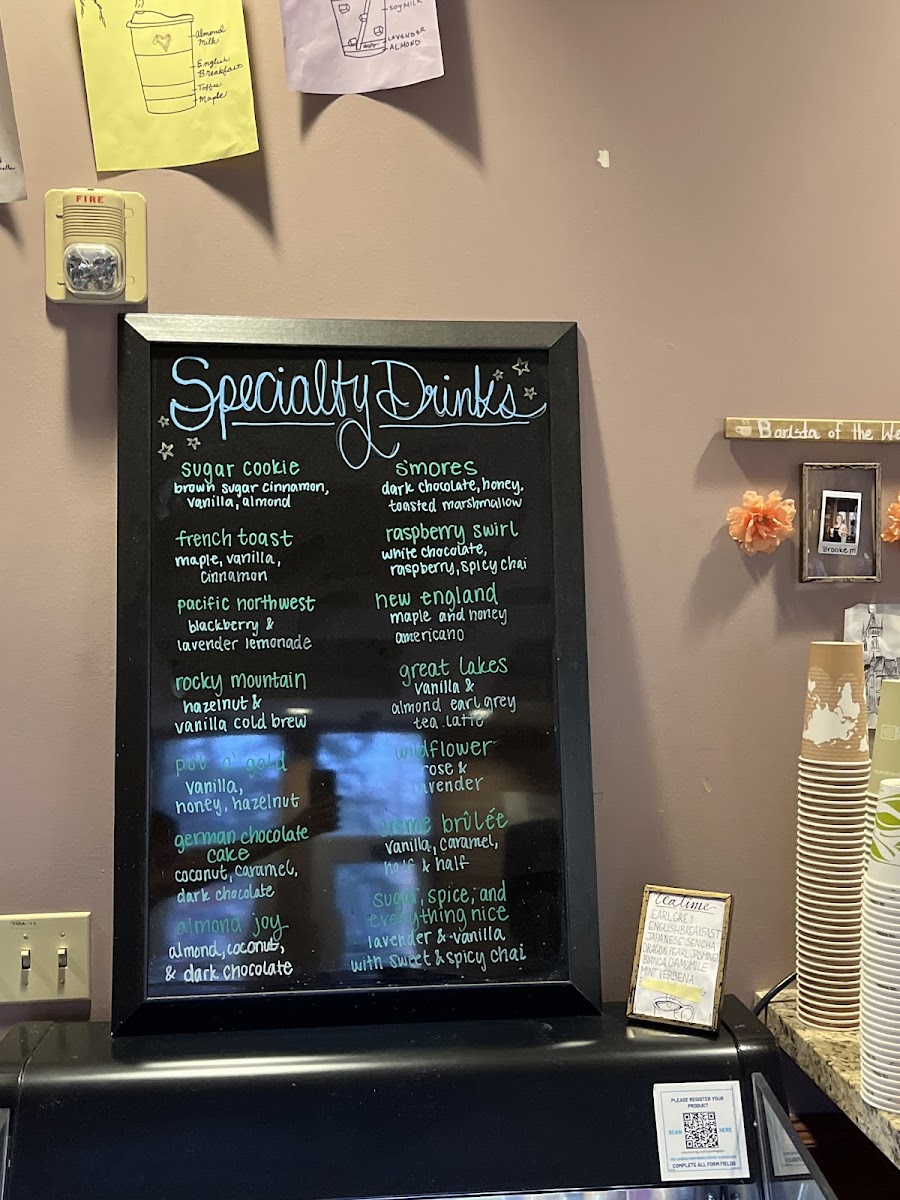 Almond
Milk
English
Breakfast
Toffee
Maple
SOYMILK
LAVENDER
ALMOND
FIRE
Specialty Drinks
sugar cookie
brown sugar cinnamon,
vanilla, almond
french toast
maple, vanilla,
cinnamon
pacific northwest
blackberry &
lavender lemonade
rocky mountain
hazelnut &
vanilla cold brew
pot o' gold
vanilla,
honey, hazelnut
german chocolate
cake
coconut, caramel,
dark chocolate
almond joy
almond, coconut,
& dark chocolate
s'mores
dark chocolate, honey,
toasted marshmallow
raspberry swirl
white chocolate,
raspberry, spicy chai
new england
maple and honey
americano
great lakes
vanilla &
almond earl grey
tea latte
wildflower
rose &
lavender
creme brûlée
vanilla, caramel,
half & half
sugar, spice, and
everything nice
lavender & vanilla
with sweet & spicy chai
Barista of the We
Brooke M
tea time
EARL GREY
ENGLISH BREAKFAST
JAPANESE SENCHA
DRAGON PEARL JASMINE
BIANCA CHAMOMILE
MINT VERBENA
PLEASE REGISTER YOUR
PRODUCT
SCAN HERE
COMPLETE ALL FORM FIELDS